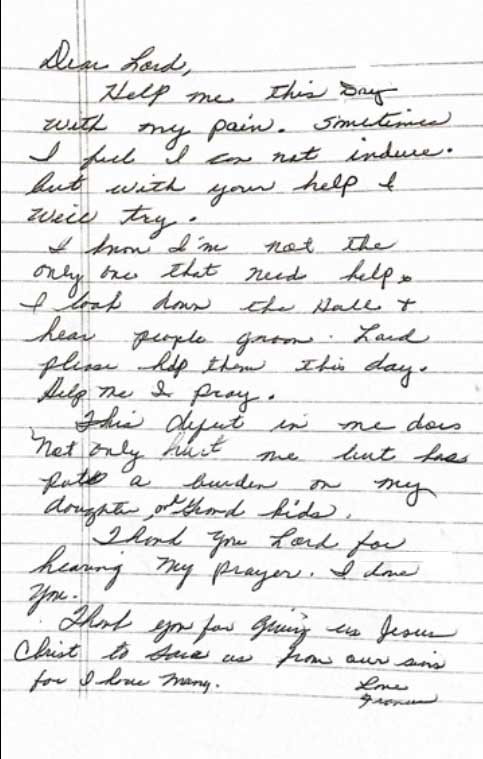 Dear Lord,
Help me this Day
with my pain. Sometimes
I feel I can not induce.
But with your help I
will try.
I know I'm not the
only one that need help.
I look down the Hall &
hear people groon. Lord
please help them this day.
Help me I pray.
This defect in me does
Not only hurt me but has
put a burden on my
daughter & Grand kids.
Thank You Lord for
hearing My prayer. I love
You.
Thank you for giving us Jesus
Christ to save us from our sins
for I have many.
Love
Frances